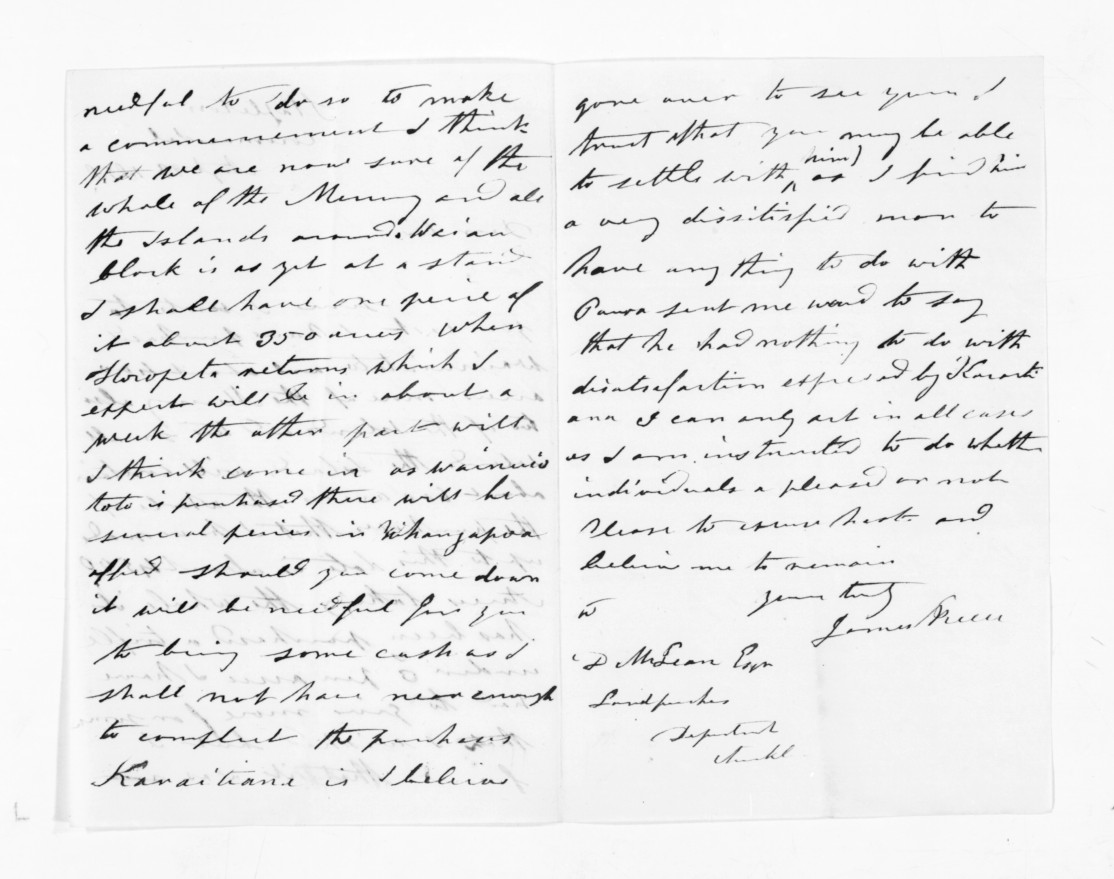 needful to do so to make
a commencement I think
that we are now sure of the
whole of the Mercury and all
the Islands around Waiau
block is as yet at a stand
I shall have one peice of
it about 350 acres when
Horopeta returns which I
expect will be in about a
week the other part will
I think come in as Wainuio
toto is purchased there will be
several peices in Whangapoa
offerd should you come down
it will be needful for you
to bring some cash as I
shall not have near enough
to compleet the purchases
Karaitiana is I believe
gone over to see you I
trust that you may be able
to settle with him as I find him
a very dissitisfied man to
have any thing to do with
Paora sent me word to say
that he had nothing to do with
disatsefaction expresed by Karaiti
ana I can only act in all cases
as I am instructed to do whether
individuals a pleased or not
Please to excuse hast and
believe me to remain
yours truly
James Preece
to
D McLean Esqr
Landpurches
Department